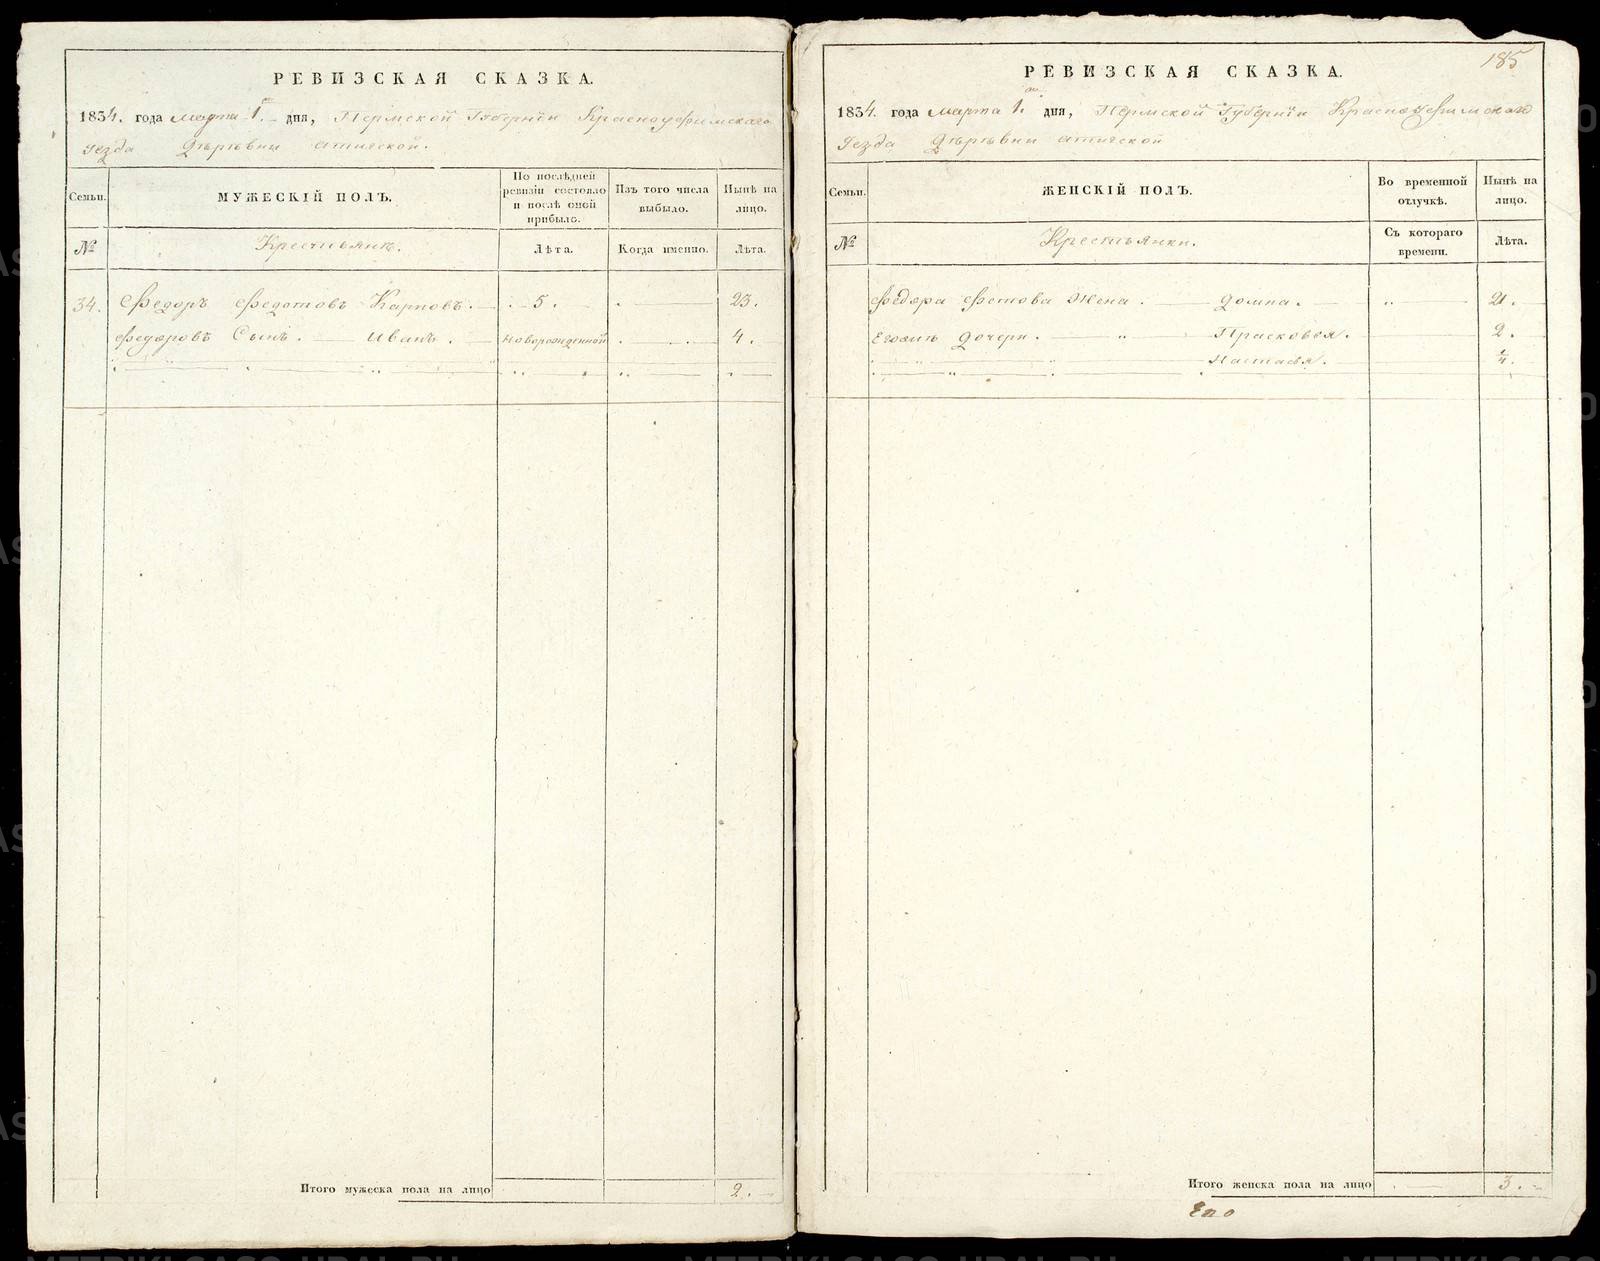 РЕВИЗСКАЯ СКАЗКА.
1834. года марта 1. дня, Пермской Губерніи Красноуфимскаго
уезда Дѣрѣвни атигской.
Семьи.
МУЖЕСКІЙ ПОЛЪ.
По послѣдней
ревизіи состояло
и послѣ оной
прибыло.
Изъ того числа
выбыло.
Нынѣ на
лицо.
№
Крестьянѣ.
Лѣта.
Когда именно.
Лѣта.
34. Федоръ Федотовъ Карповъ. 5. 23.
Федоровъ Сынъ. Иванъ. новорожденной 4.
Итого мужеска пола на лицо 2.
185
РЕВИЗСКАЯ СКАЗКА.
1834. года марта 1. дня, Пермской Губерніи Красноуфимскаго
Уезда Дѣрѣвни атигской
Семьи.
ЖЕНСКІЙ ПОЛЪ.
Во временной
отлучкѣ.
Нынѣ на
лицо.
№
Крестьянки.
Съ котораго
времени.
Лѣта.
Федора Жена. Домна. 21.
Дочери. Прасковея. 2.
Настасья. ¼.
Итого женска пола на лицо 3.
Его